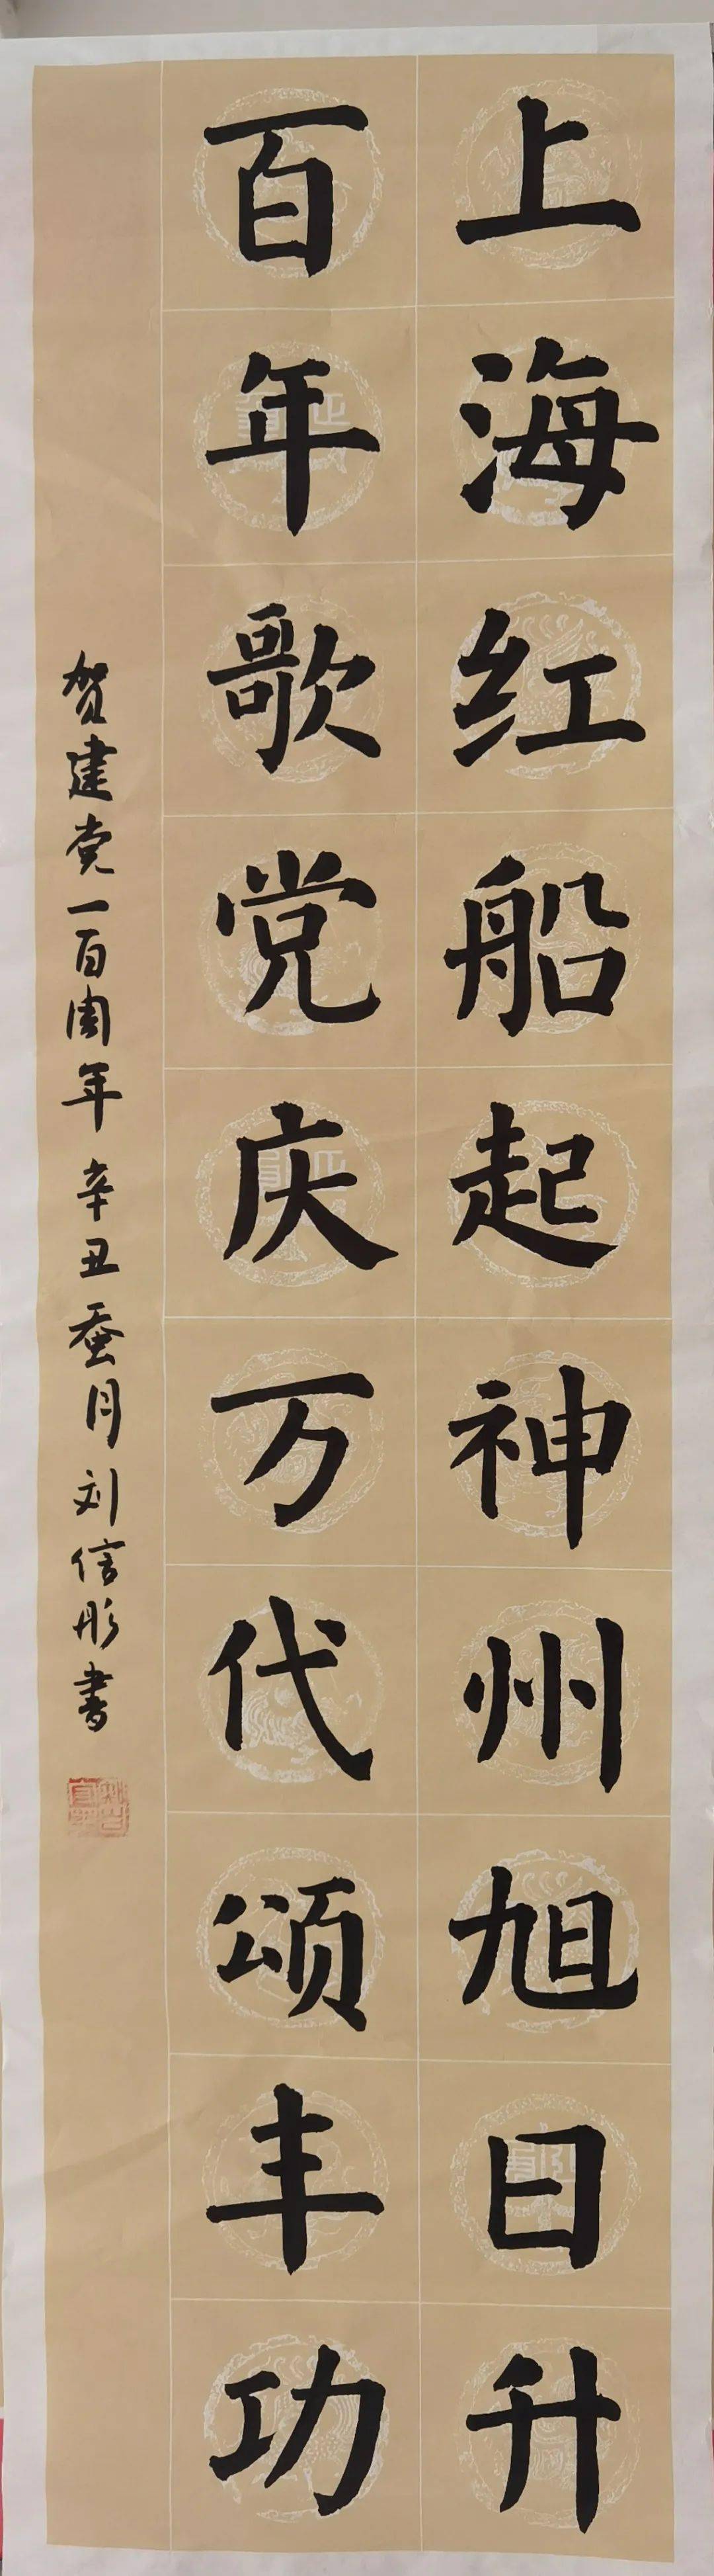 上海红船起神州旭日升
百年歌党庆万代颂丰功
贺建党一百周年 辛丑蚕月 刘信彤书